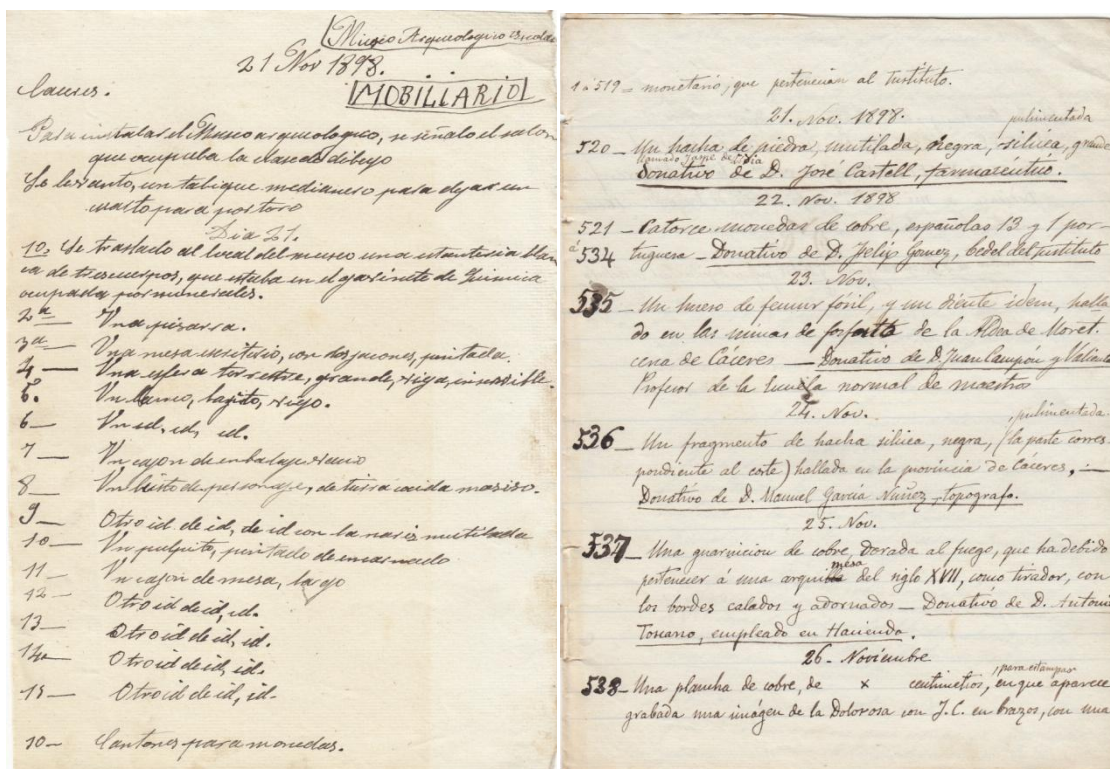 Museo Arqueologico
21 Nov 1898.
MOBILIARIO
Caceres.
Para instalar el Museo arqueologico, se señalo el salon
que ocupaba la clase de dibujo
Se levanto, un tabique medianero para dejar un
cuarto para
Dia 21.
10. Se traslado al local del museo una estanteria blan
ca de tres cuerpos, que estaba en el gavinete de Quimica
ocupada por minerales.
2ª — Una pizarra.
3ª — Una mesa escritorio, con dos jacones, pintada.
4 — Una esfera terrestre, grande, vieja, inservible.
5. Un banco, bajito, viejo.
6 — Un id, id, id.
7 — Un cajon de embalage vacio
8 — Un busto de personaje, de tierra cocida maziso.
9 — Otro id de id, de id con la nariz mutilada
10 — Un pulpito, pintado de encarnado
11 — Un cajon de mesa, bajo
12 — Otro id de id, id.
13 — Otro id de id, id.
14 — Otro id de id, id.
15 — Otro id de id, id.
10 — Cantones para monedas.
1 á 519 = monetario, que pertenecian al Instituto.
21. Nov. 1898.
pulimentada
520 — Un hacha de piedra, mutilada, negra, silícea, grande
llamado Jaspe de Lidia
Donativo de D. José Castell, farmacéutico.
22. Nov. 1898
521 — Catorce monedas de cobre, españolas 13 y 1 por-
á 534 tuguesa — Donativo de D. Felix Gomez, bedel del Instituto
23. Nov.
535 — Un hueso de femur fósil, y un diente idem, halla
do en las minas de fosfato de la Aldea de Moret
cerca de Cáceres — Donativo de D. Juan Campón y
Profesor de la Escuela normal de maestros
24. Nov.
, pulimentada
536 — Un fragmento de hacha silícea, negra, (la parte corres-
pondiente al corte) hallada en la provincia de Cáceres, —
Donativo de D. Manuel García Núñez, topografo.
25. Nov.
537 — Una guarnicion de cobre, dorada al fuego, que ha debido
mesa
pertenecer á una arquilla del siglo XVII, como tirador, con
los bordes calados y adornados — Donativo de D. Antonio
Toscano, empleado en Hacienda.
26. Noviembre
, para estampar
538 — Una plancha de cobre, de x centimetros, en que aparece
grabada una imágen de la Dolorosa con J.C. en brazos, con una